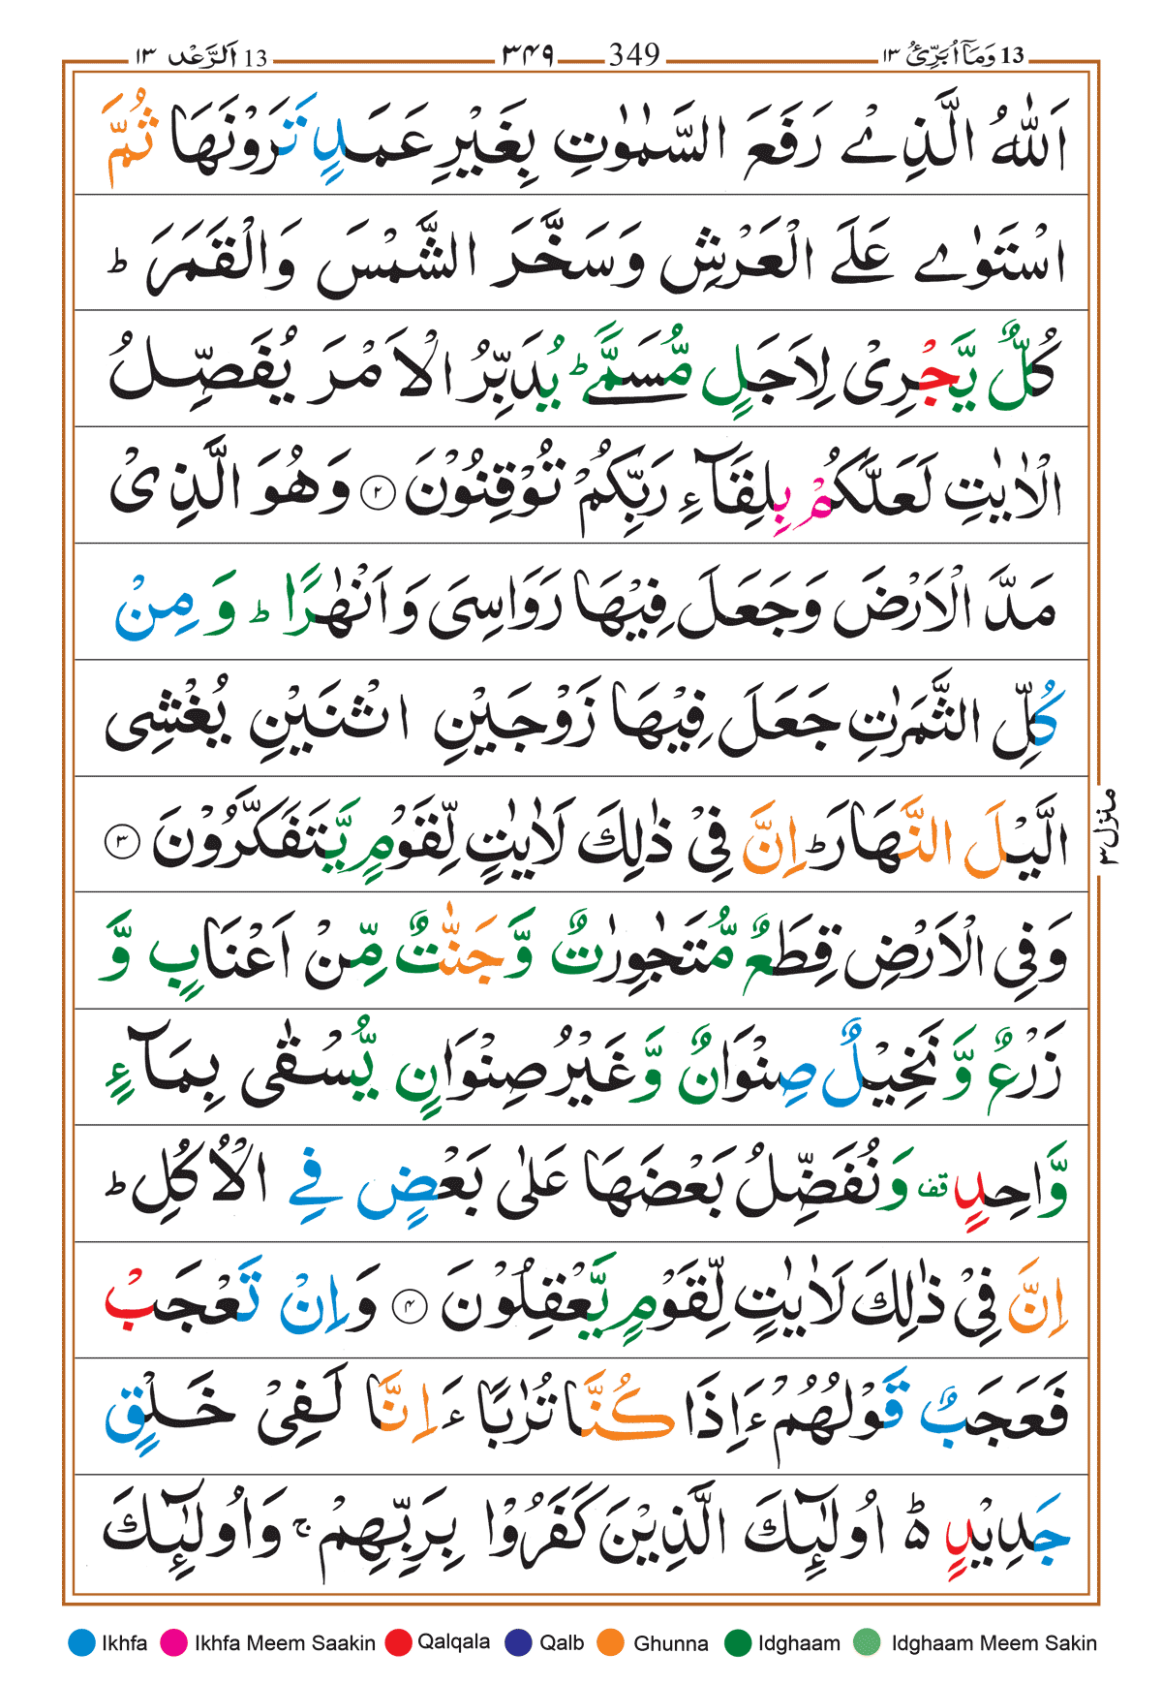 13 اَلرَّعْد ١٣
٣٤٩ 349
13 وَمَآ اُبَرِّئُ ١٣
اَللّٰهُ الَّذِیْ رَفَعَ السَّمٰوٰتِ بِغَیْرِ عَمَدٍ تَرَوْنَهَا ثُمَّ
اسْتَوٰی عَلَی الْعَرْشِ وَسَخَّرَ الشَّمْسَ وَالْقَمَرَ ؕ
كُلٌّ یَّجْرِیْ لِاَجَلٍ مُّسَمًّی ؕ یُدَبِّرُ الْاَمْرَ یُفَصِّلُ
الْاٰیٰتِ لَعَلَّكُمْ بِلِقَآءِ رَبِّكُمْ تُوْقِنُوْنَ ۝٢ وَهُوَ الَّذِیْ
مَدَّ الْاَرْضَ وَجَعَلَ فِیْهَا رَوَاسِیَ وَاَنْهٰرًا ؕ وَمِنْ
كُلِّ الثَّمَرٰتِ جَعَلَ فِیْهَا زَوْجَیْنِ اثْنَیْنِ یُغْشِی
الَّیْلَ النَّهَارَ ؕ اِنَّ فِیْ ذٰلِكَ لَاٰیٰتٍ لِّقَوْمٍ یَّتَفَكَّرُوْنَ ۝٣
وَفِی الْاَرْضِ قِطَعٌ مُّتَجٰوِرٰتٌ وَّجَنّٰتٌ مِّنْ اَعْنَابٍ وَّ
زَرْعٌ وَّنَخِیْلٌ صِنْوَانٌ وَّغَیْرُ صِنْوَانٍ یُّسْقٰی بِمَآءٍ
وَّاحِدٍ قف وَنُفَضِّلُ بَعْضَهَا عَلٰی بَعْضٍ فِی الْاُكُلِ ؕ
اِنَّ فِیْ ذٰلِكَ لَاٰیٰتٍ لِّقَوْمٍ یَّعْقِلُوْنَ ۝٤ وَاِنْ تَعْجَبْ
فَعَجَبٌ قَوْلُهُمْ ءَاِذَا كُنَّا تُرٰبًا ءَاِنَّا لَفِیْ خَلْقٍ
جَدِیْدٍ ؕ۬ اُولٰٓئِكَ الَّذِیْنَ كَفَرُوْا بِرَبِّهِمْ ۚ وَاُولٰٓئِكَ
منزل٣
Ikhfa Ikhfa Meem Saakin Qalqala Qalb Ghunna Idghaam Idghaam Meem Sakin